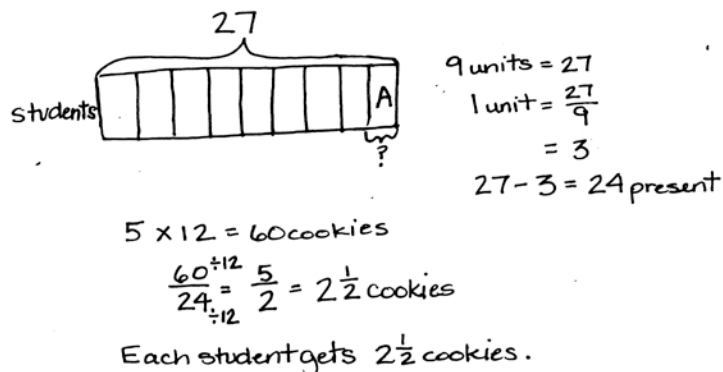 27
students A
?
9 units = 27
1 unit = 27/9
= 3
27 - 3 = 24 present
5 × 12 = 60 cookies
60÷12/24÷12 = 5/2 = 2 1/2 cookies
Each student gets 2 1/2 cookies.